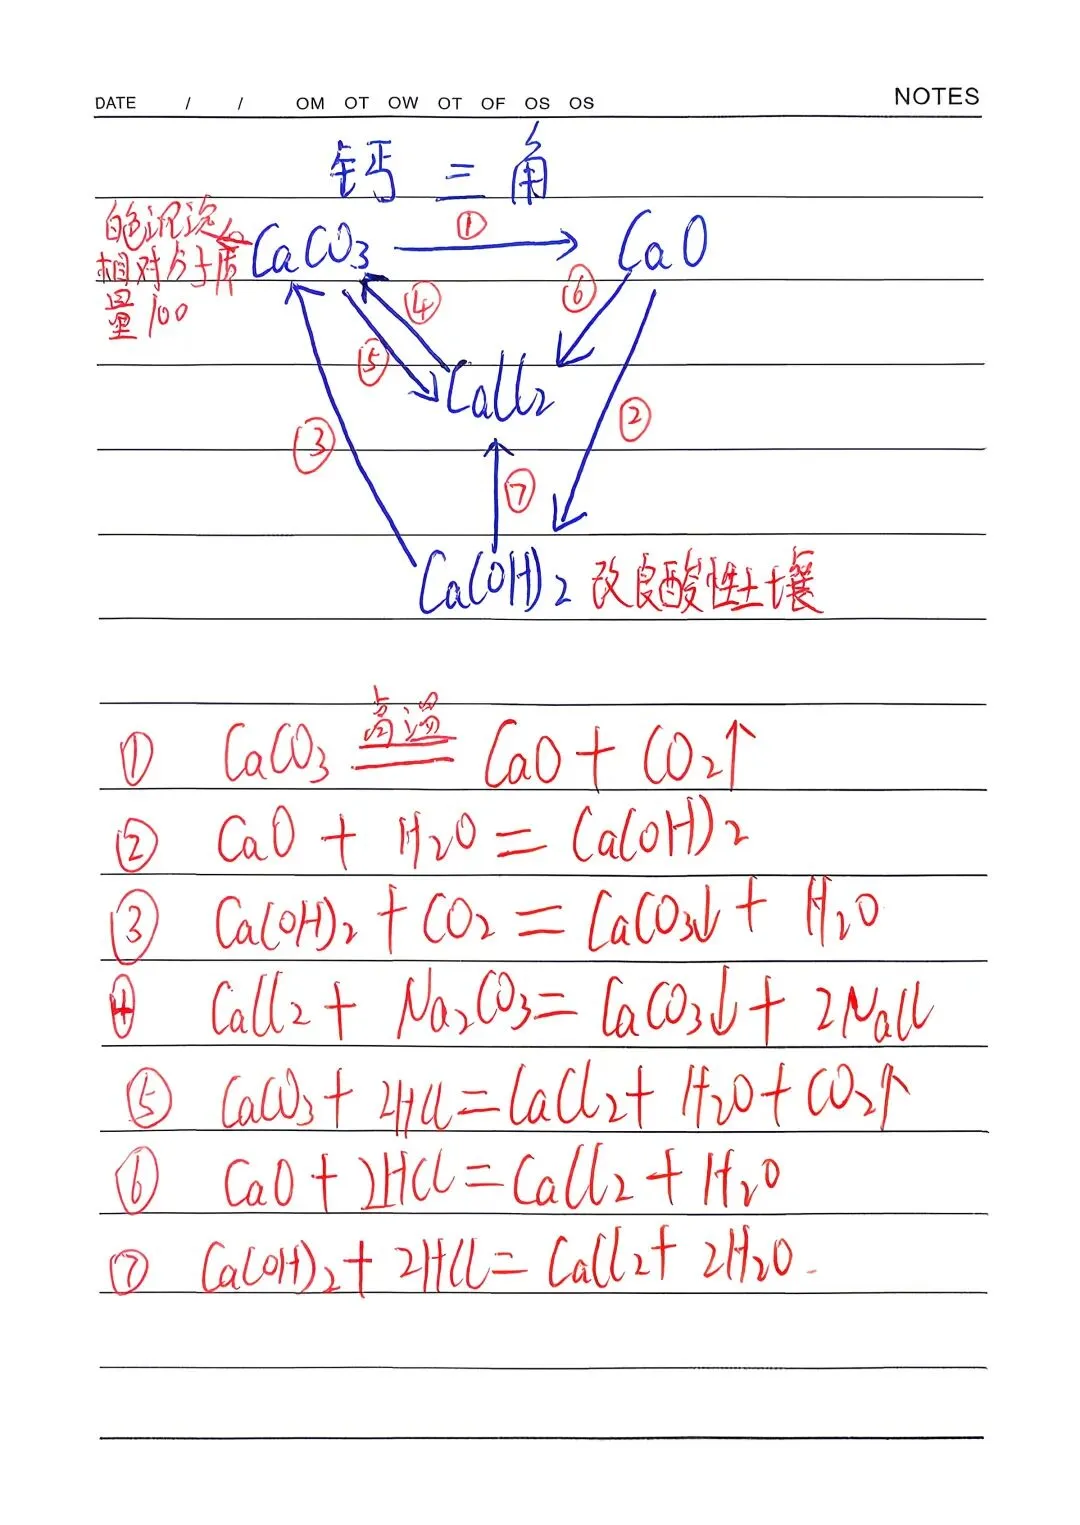 DATE / / OM OT OW OT OF OS OS NOTES
钙三角
①
白色沉淀
CaCO₃ CaO
相对分子质
量100
④ ⑥
⑤
CaCl₂
③ ②
⑦
Ca(OH)₂ 改良酸性土壤
① CaCO₃ 高温 == CaO + CO₂↑
② CaO + H₂O = Ca(OH)₂
③ Ca(OH)₂ + CO₂ = CaCO₃↓ + H₂O
④ CaCl₂ + Na₂CO₃ = CaCO₃↓ + 2NaCl
⑤ CaCO₃ + 2HCl = CaCl₂ + H₂O + CO₂↑
⑥ CaO + 2HCl = CaCl₂ + H₂O
⑦ Ca(OH)₂ + 2HCl = CaCl₂ + 2H₂O